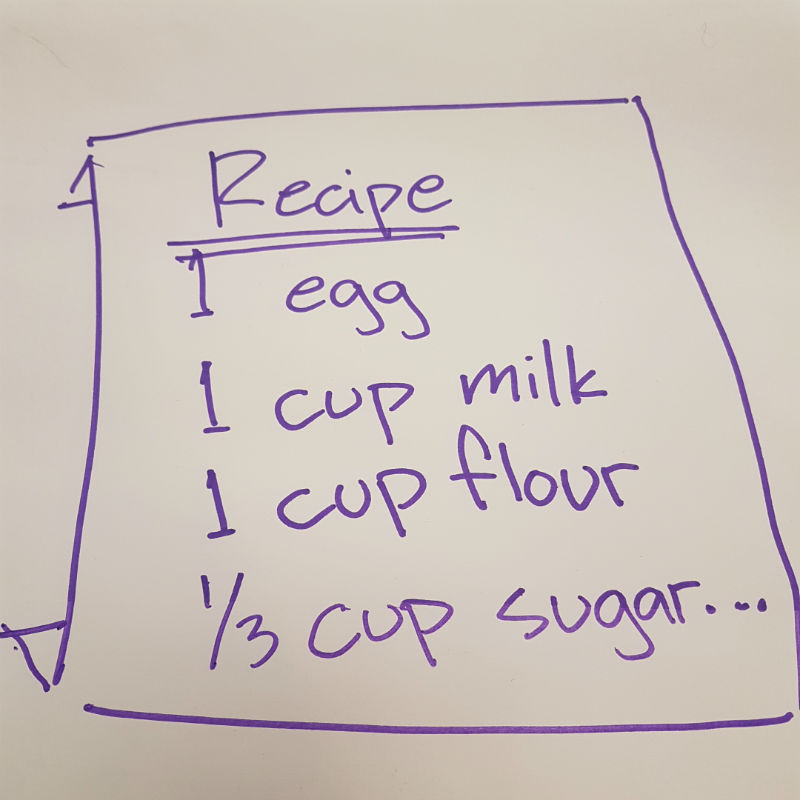 Recipe
1 egg
1 cup milk
1 cup flour
1/3 cup sugar...